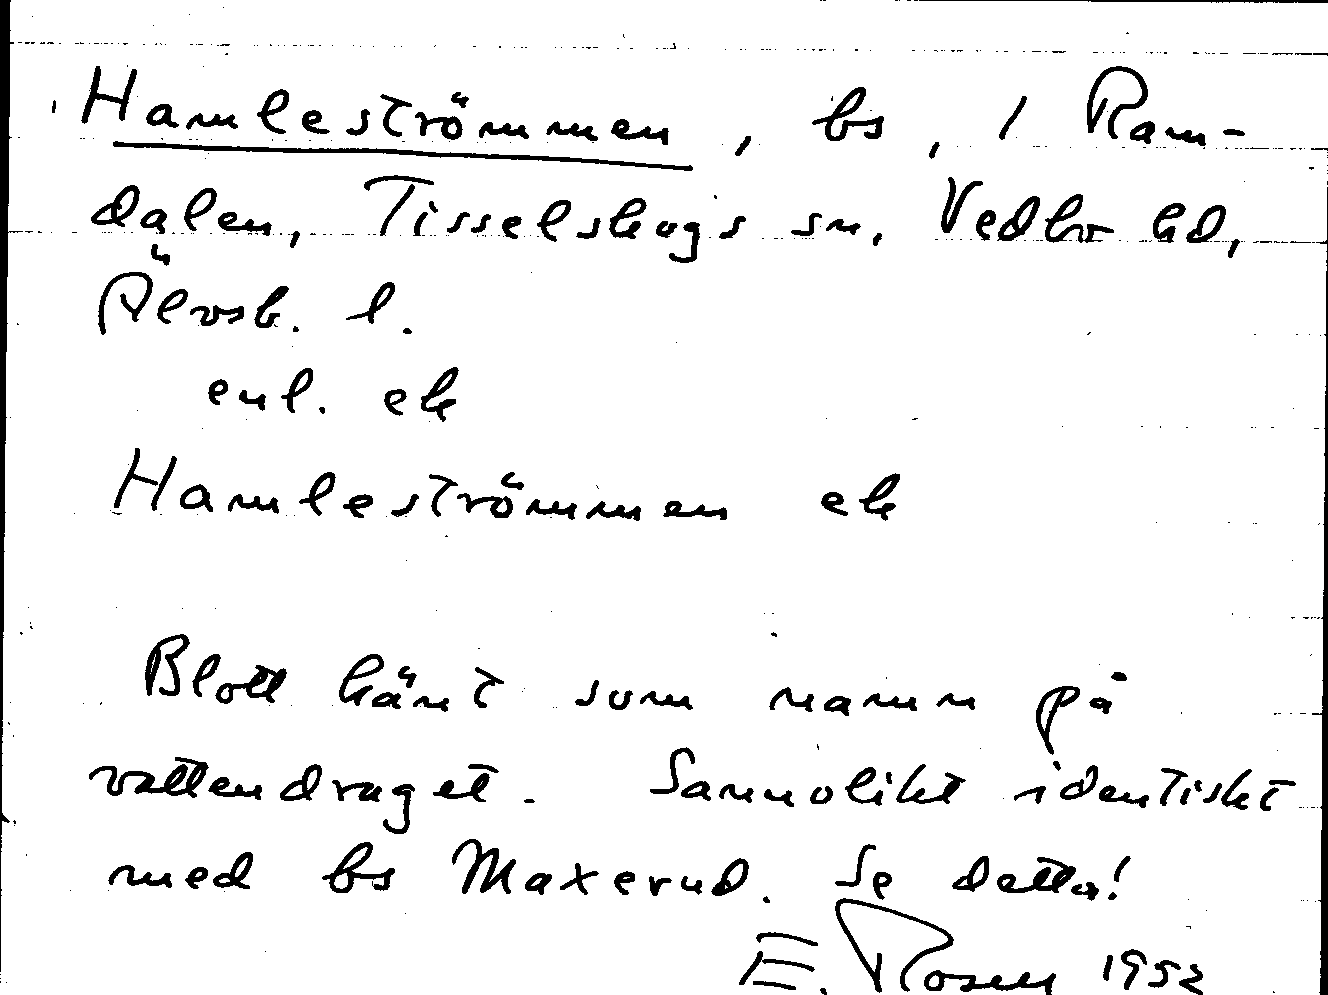 Hamleströmmen, bs, 1 Ram-
dalen, Tisselskogs sn, Vedbo hd,
Älvsb. l.
enl. ek
Hamleströmmen ek
Blott känt som namn på
vattendraget. Sannolikt identiskt
med bs Maxerud. Se detta!
E. Rosen 1952